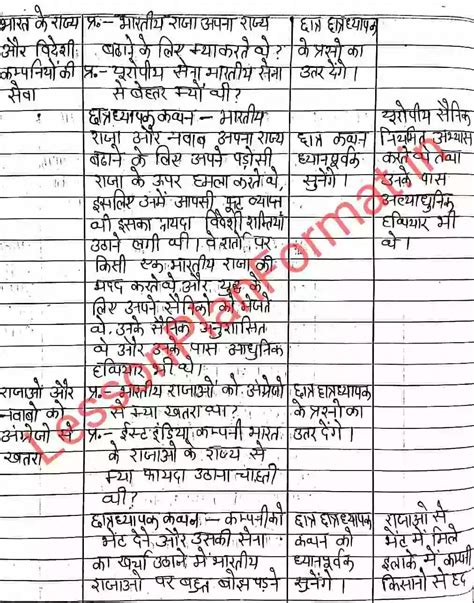 भारत के राज्य प्र.- भारतीय राजा अपना राज्य छात्र छात्रध्यापक
और विदेशी बढाने के लिए क्या करते थे ? के प्रश्नो का
कम्पनियों की प्र.- यूरोपीय सेना भारतीय सेना उतर देंगे ।
सेवा से बेहतर क्यों थी ?
छात्रध्यापक कथन - भारतीय यूरोपीय सैनिक
राजा और नवाब अपना राज्य छात्र कथन नियमित अभ्यास
बढाने के लिए अपने पड़ोसी ध्यानपूर्वक करते थे तथा
राजा के ऊपर हमला करते थे, सुनेंगे । उनके पास
इसलिए उनमें आपसी फूट व्याप्त अत्याधुनिक
थी इसका फायदा विदेशी शक्तियां हथियार भी
उठाने लगी थी । वे शर्तो पर थे ।
किसी एक भारतीय राजा की
मदद करते थे और युद्ध के
लिए अपने सैनिको को भेजते
थे, उनके सैनिक अनुशासित
थे और उनके पास आधुनिक
हथियार भी थे ।
राजाओं और प्र.- भारतीय राजाओं को अंग्रेजो छात्र छात्रध्यापक
नवाबो को से क्या खतरा था ? के प्रश्नो का
अंग्रेजो से प्र.- ईस्ट इंडिया कम्पनी भारत उतर देंगे ।
खतरा के राजाओं के राज्य से
क्या फायदा उठाना चाहती
थी ?
छात्रध्यापक कथन - कम्पनी को छात्र छात्रध्यापक राजाओ से
भेंट देने और उसकी सेना कथन को भेंट में मिले
का खर्चा उठाने में भारतीय ध्यानपूर्वक इलाके में कम्पनी
राजाओं पर बहुत बोझ पड़ने सुनेंगे । किसानो से हद
LessonPlanFormat.in